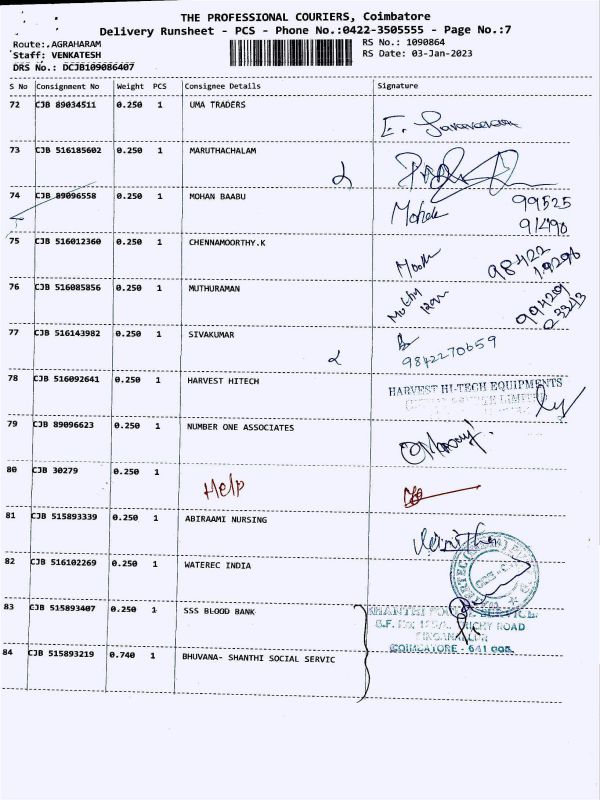 THE PROFESSIONAL COURIERS, Coimbatore
Delivery Runsheet - PCS - Phone No.:0422-3505555 - Page No.:7
Route:.AGRAHARAM
RS No.: 1090864
Staff: VENKATESH
RS Date: 03-Jan-2023
DRS No.: DCJB109086407
S No Consignment No Weight PCS Consignee Details Signature
72 CJB 89034511 0.250 1 UMA TRADERS
E.
73 CJB 516185602 0.250 1 MARUTHACHALAM
74 CJB 89096558 0.250 1 MOHAN BAABU 99525
91490
75 CJB 516012360 0.250 1 CHENNAMOORTHY.K
98422
19296
76 CJB 516085856 0.250 1 MUTHURAMAN
994201
23343
77 CJB 516143982 0.250 1 SIVAKUMAR
9842270659
78 CJB 516092641 0.250 1 HARVEST HITECH
HARVEST HI-TECH EQUIPMENTS
LIMITED
79 CJB 89096623 0.250 1 NUMBER ONE ASSOCIATES
80 CJB 30279 0.250 1
Help
81 CJB 515893339 0.250 1 ABIRAAMI NURSING
82 CJB 516102269 0.250 1 WATEREC INDIA
83 CJB 515893407 0.250 1 SSS BLOOD BANK
SHANTHI SERVICE
S.F. No: TRICHY ROAD
SINGANALLUR
COIMBATORE - 641 005.
84 CJB 515893219 0.740 1 BHUVANA- SHANTHI SOCIAL SERVIC